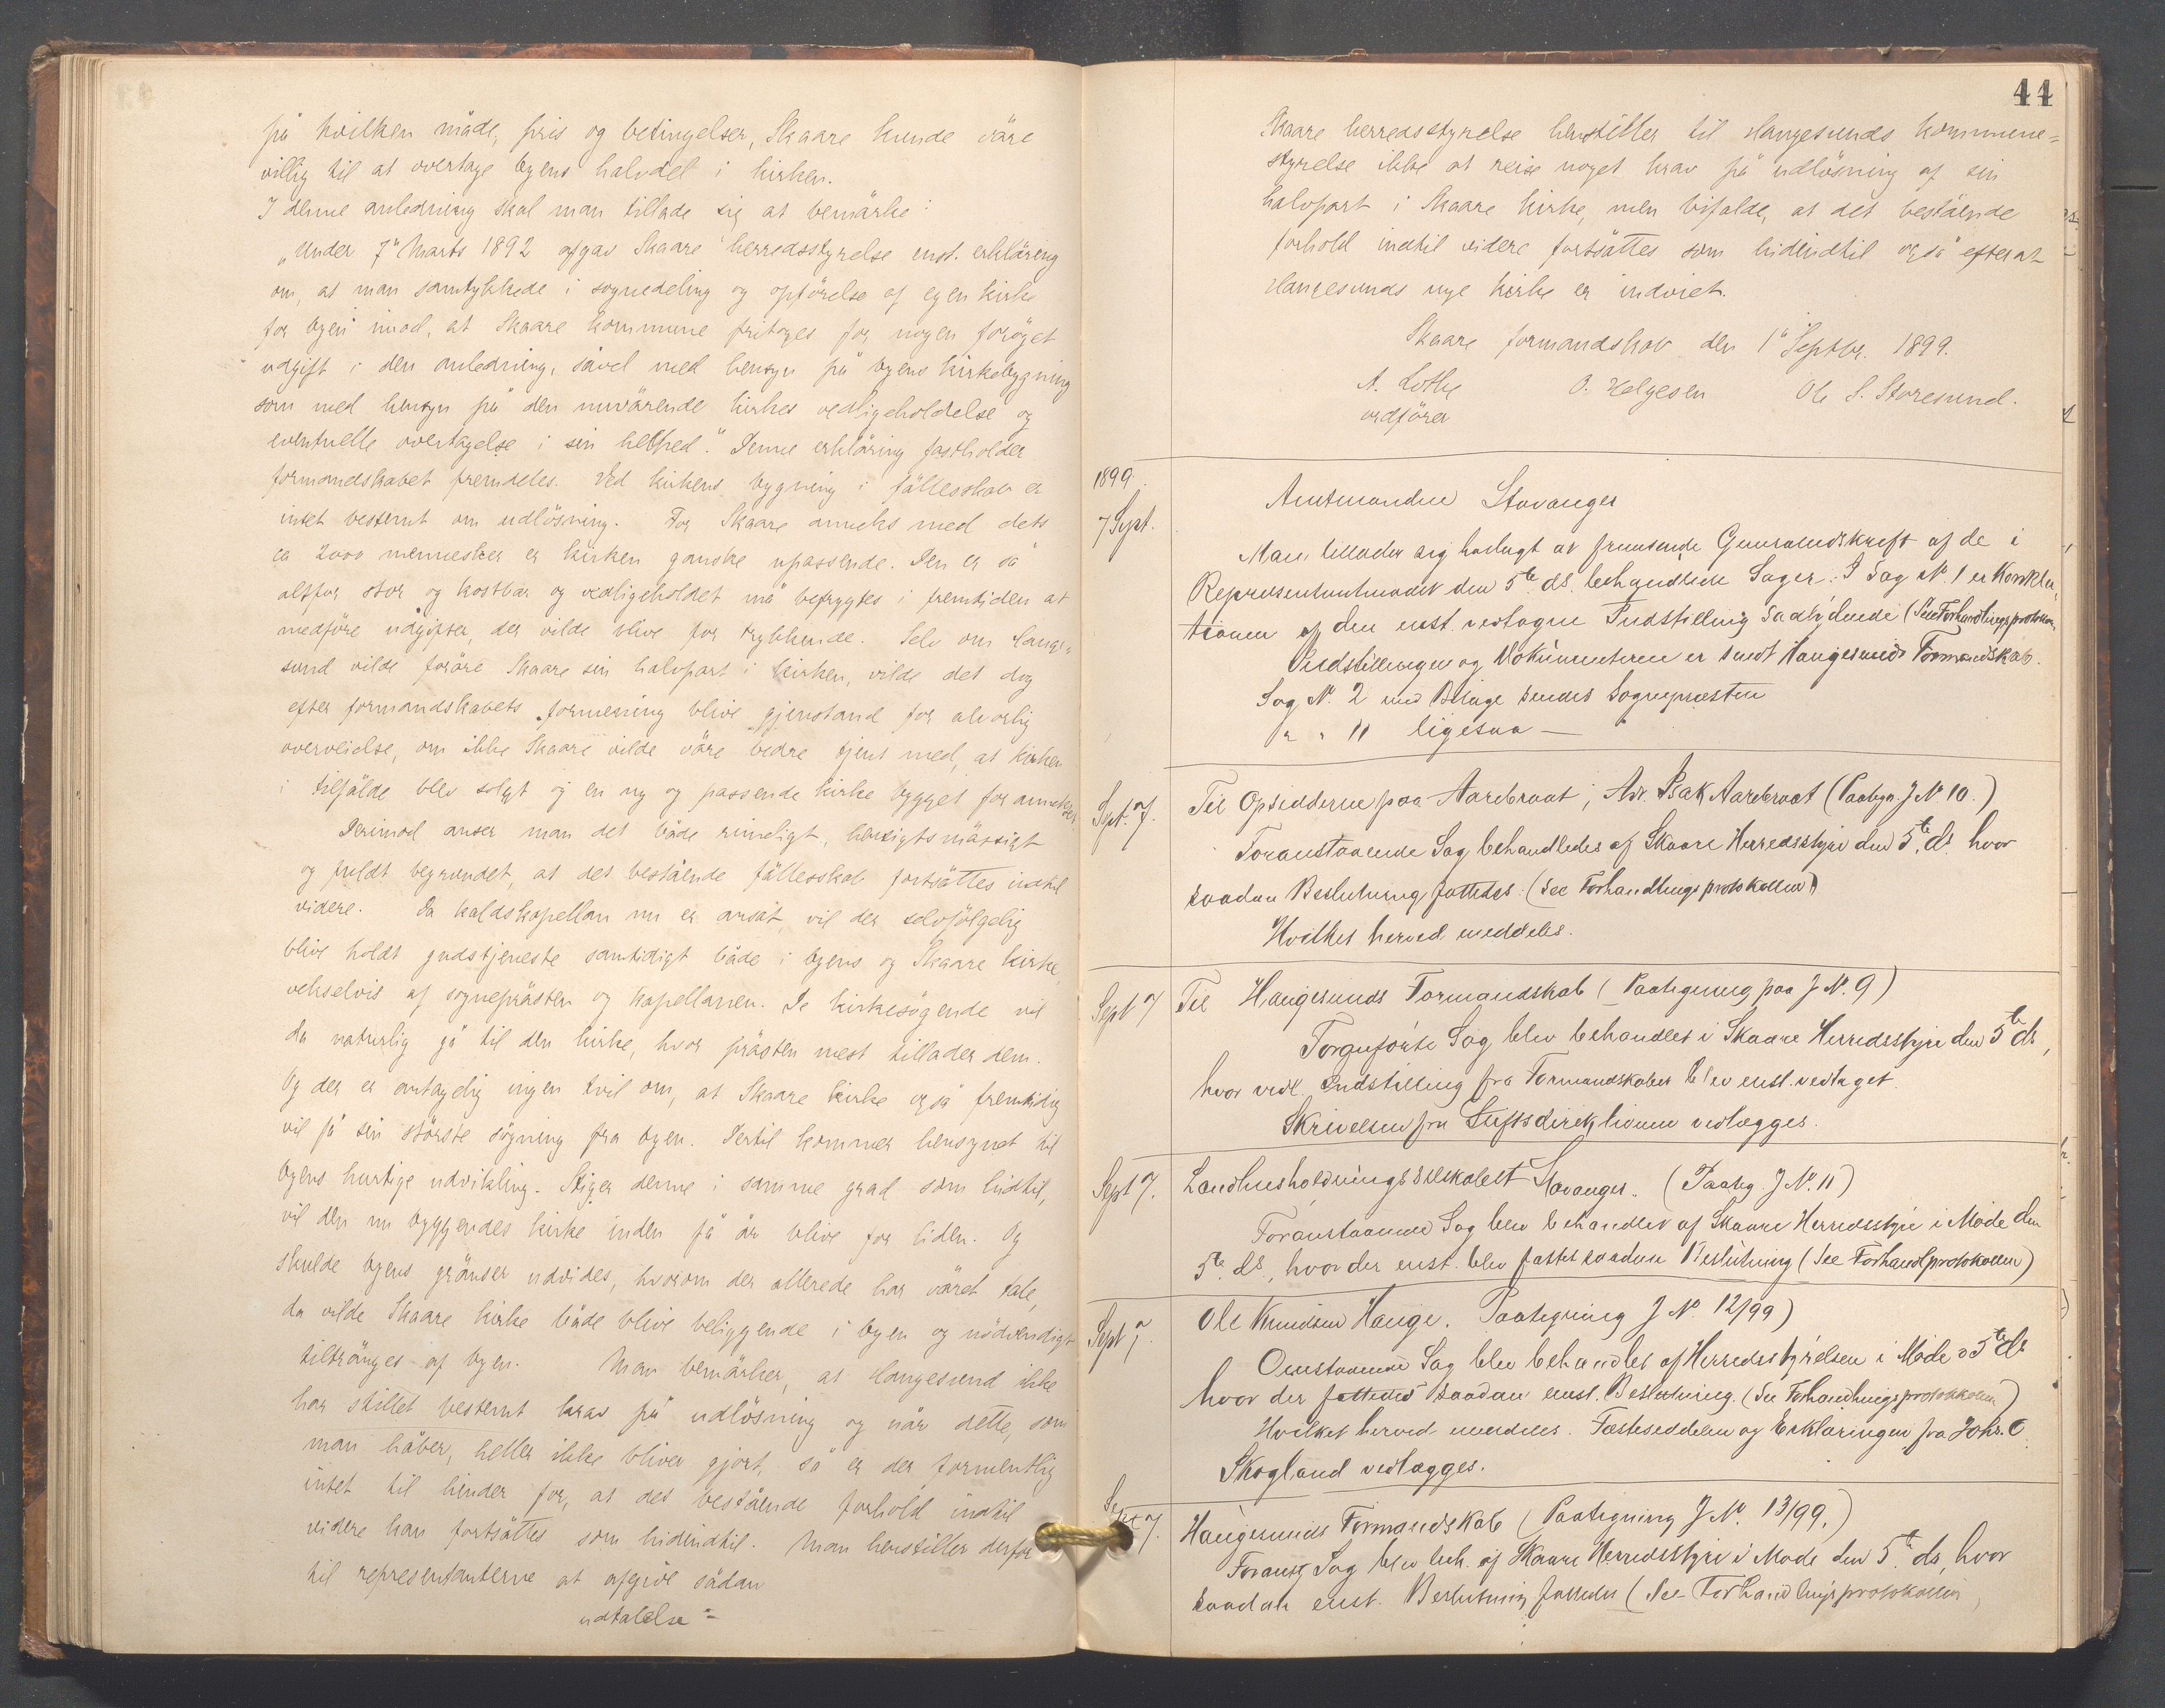 på hvilken måde, pris og betingelser, Skaare kunde väre
villig til at overtage byens halvdel i kirken.
I denne anledning skal man tillade sig at bemärke:
„Under 7de Marts 1892 afgav Skaare herredsstyrelse enst. erkläring
om, at man samtykkede i sognedeling og opförelse af egen kirke
for byen imod, at Skaare kommune fritages for nogen foröget
udgift i den anledning, såvel med hensyn på byens kirkebygning
som med hensyn på den nuvärende kirkes vedligeholdelse og
eventuelle overtagelse i sin helhed." Denne erkläring fastholder
formandskabet fremdeles. Ved kirkens bygning i fällesskab er
intet bestemt om udlösning. For Skaare anneks med dets
ca 2000 mennesker er kirken ganske upassende. Den er så
altfor stor og kostbar og vedligeholdet må befrygtes i fremtiden at
medföre udgifter, der vilde blive for trykkende. Selv om Hauge-
sund vilde foräre Skaare sin halvpart i kirken, vilde det dog
efter formandskabets formening blive gjenstand for alvorlig
overveielse, om ikke Skaare vilde väre bedre tjent med, at kirken
i tilfälde blev solgt og en ny og passende kirke bygget for annekset.
Derimod anser man det både rimeligt, hensigtsmässigt
og fuldt begrundet, at det bestående fällesskab fortsättes indtil
videre. Da kaldskapellan nu er ansat, vil der selvfölgelig
blive holdt gudstjeneste samtidigt både i byens og Skaare kirke
vekselvis af sogneprästen og kapellanen. De kirkesögende vil
da naturlig gå til den kirke, hvor prästen mest tillader dem.
Og der er antagelig ingen tvil om, at Skaare kirke også fremtidig
vil få sin störste sögning fra byen. Dertil kommer hensynet til
byens hurtige udvikling. Stiger denne i samme grad som hidtil,
vil den nu byggendes kirke inden få år blive for liden. Og
skulde byens gränser udvides, hvorom der allerede har väret tale,
da vilde Skaare kirke både blive beliggende i byen og nödvendigt
tiltränges af byen. Man bemärker, at Haugesund ikke
har stillet bestemt krav på udlösning og når dette, som
man håber, heller ikke bliver gjort, så er der formentlig
intet til hinder for, at det bestående forhold indtil
videre kan fortsättes som hidindtil. Man henstiller derfor
til repræsentanterne at afgive sådan
udtalelse =
44
Skaare herredsstyrelse henstiller til Haugesunds kommune=
styrelse ikke at reise noget krav på udlösning af sin
halvpart i Skaare kirke, men bifalde, at det bestående
forhold indtil videre fortsättes som hidindtil også efterat
Haugesunds nye kirke er indviet.
Skaare formandskab den 1ste Septbr. 1899.
A. Lothe O. Helgesen Ole S. Storesund.
ordförer
1899.
7 Sept.
Amtmanden Stavanger
Man tillader sig hoslagt at fremsende Genuraludskrift af de i
Representantmødet den 5te ds. behandlede Sager. I Sag No 1 er Konklu
tionen af den enst. vedtagne Indstilling saalydende (See Forhandlingsprotokol.
Indstillingen og Dokumenterne er sendt Haugesunds Formandskab.
Sag No 2 med Bilage sendes Sognepræsten
" " 11 ligesaa —
Sept. 7. Til Opsidderne paa Aarebraat, Adr. Isak Aarebraat (Paategn. J No 10.)
Foranstaaende Sag behandledes af Skaare Herredsstyre den 5te ds. hvor
saadan Beslutning fattedes: (See Forhandlingsprotokollen)
Hvilket herved meddeles.
Sept 7 Til Haugesunds Formandskab (Paategning paa J No. 9)
Foranførte Sag blev behandlet i Skaare Herredsstyre den 5te ds,
hvor vedl. Indstilling fra Formandskabet blev enst. vedtaget.
Skrivelsen fra Stiftsdirektionen vedlægges.
Sept 7. Landhusholdningsselskabet Stavanger. (Paateg. J No. 11)
Foranstaaende Sag blev behandlet af Skaare Herredsstyre i Møde den
5te ds, hvor der enst. blev fattet saadan Beslutning (See Forhandlprotokollen)
Sept 7. Ole Knudsen Hauge. Paategning J No 12/99)
Omstaaende Sag blev behandlet af Herredsstyrelsen i Møde d 5te ds
hvor der fattedes saadan enst. Beslutning. (See Forhandlingsprotokkollen)
Hvilket herved meddeles. Fæstesedelen og Erklæringen fra Johs. O.
Skogland vedlægges.
Sept 7. Haugesunds Formandskab (Paategning J No. 13/99.)
Foranst. Sag blev beh. af Skaare Herredsstyre i Møde den 5te ds, hvor
saadan enst. Beslutning fattedes (See Forhandlingsprotokollen)